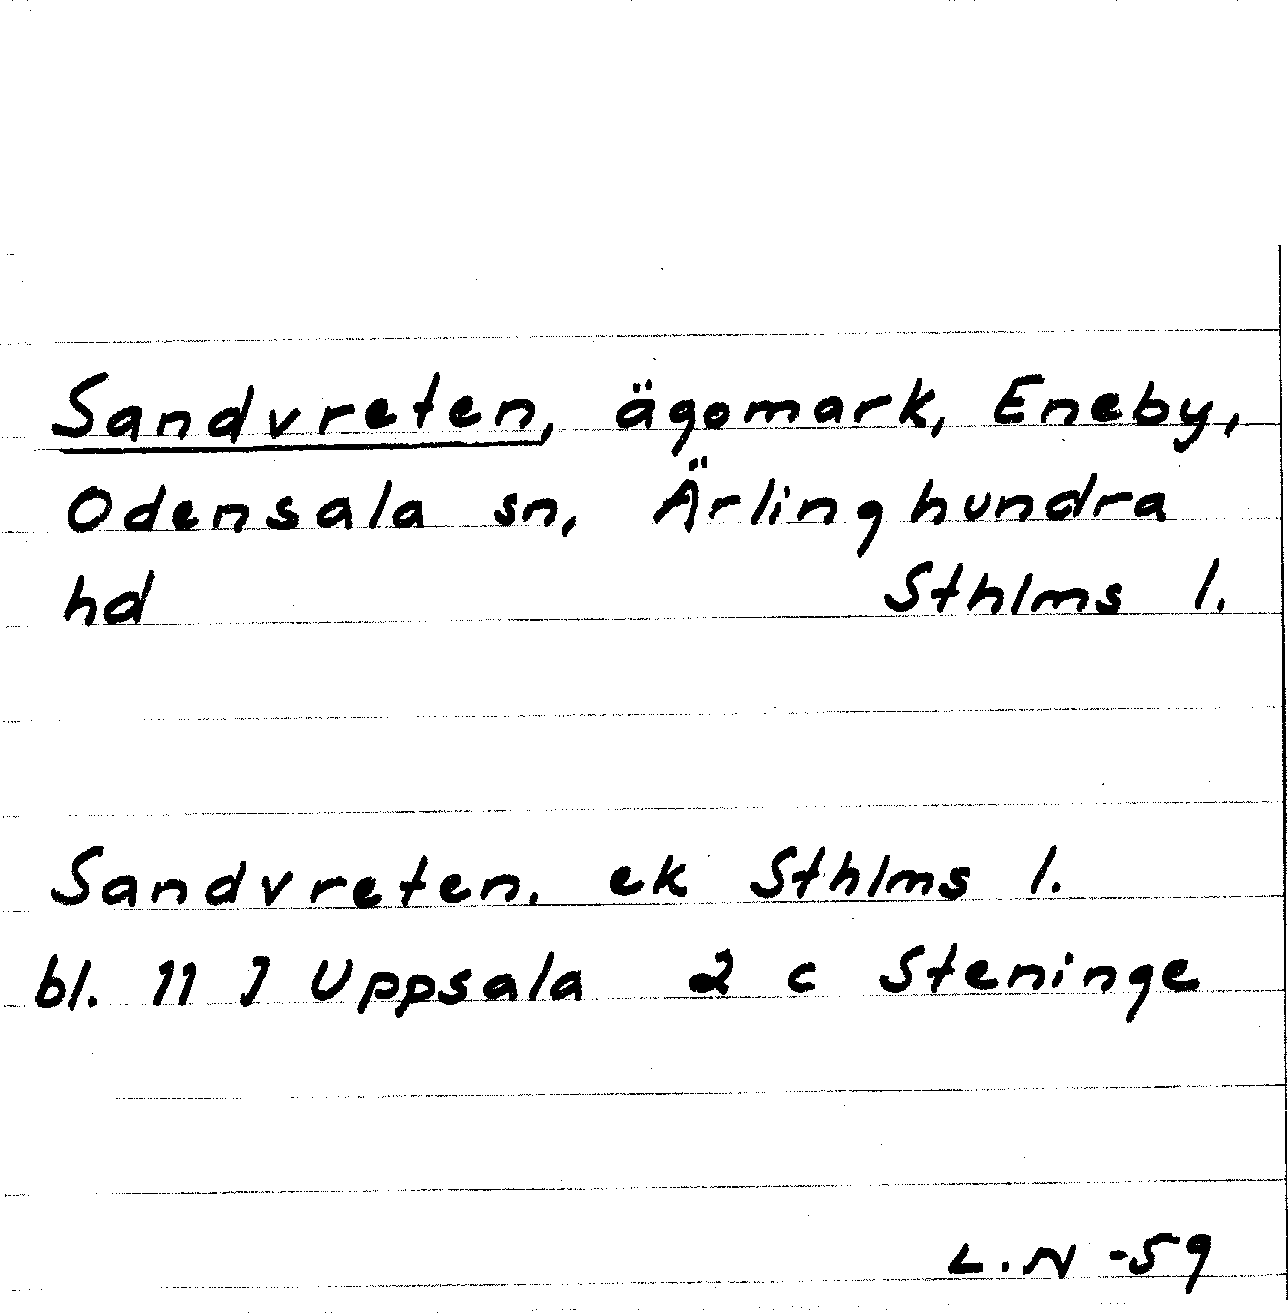 Sandvreten, ägomark, Eneby,
Odensala sn, Ärlinghundra
hd Sthlms l.
Sandvreten. ek Sthlms l.
bl. 11 I Uppsala 2 c Steninge
L.N -59